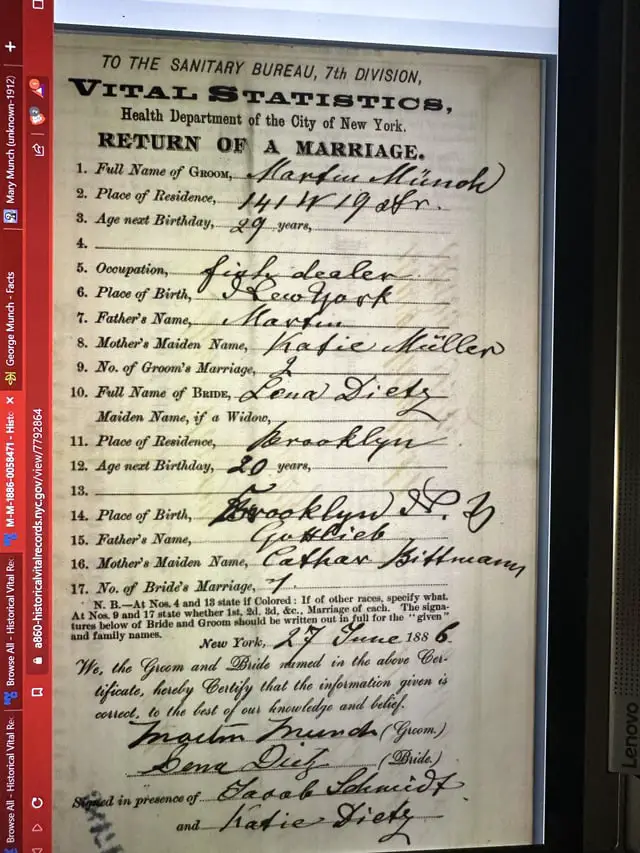 TO THE SANITARY BUREAU, 7th DIVISION,
VITAL STATISTICS,
Health Department of the City of New York.
RETURN OF A MARRIAGE.
1. Full Name of GROOM, Martin Münch
2. Place of Residence, 141 W 19 Str.
3. Age next Birthday, 29 years,
4.
5. Occupation, fish dealer
6. Place of Birth, New York
7. Father's Name, Martin
8. Mother's Maiden Name, Katie Müller
9. No. of Groom's Marriage, 2
10. Full Name of BRIDE, Lena Dietz
Maiden Name, if a Widow,
11. Place of Residence, Brooklyn
12. Age next Birthday, 20 years,
13.
14. Place of Birth, Brooklyn N. Y
15. Father's Name, Gottlieb
16. Mother's Maiden Name, Cathar Bittmann
17. No. of Bride's Marriage, 1
N. B.—At Nos. 4 and 13 state if Colored: If of other races, specify what.
At Nos. 9 and 17 state whether 1st, 2d, 3d, &c., Marriage of each. The signa-
tures below of Bride and Groom should be written out in full for the "given"
and family names.
New York, 27 June 1886.
We, the Groom and Bride named in the above Cer-
tificate, hereby Certify that the information given is
correct, to the best of our knowledge and belief.
Martin Munch (Groom.)
Lena Dietz (Bride.)
Signed in presence of Jacob Schmidt
and Katie Dietz
Mary Munch (unknown-1912)
George Munch - Facts
M-M-1886-0058471 - Histo
Browse All - Historical Vital Re
Browse All - Historical Vital Re
a860-historicalvitalrecords.nyc.gov/view/7792864
Lenovo